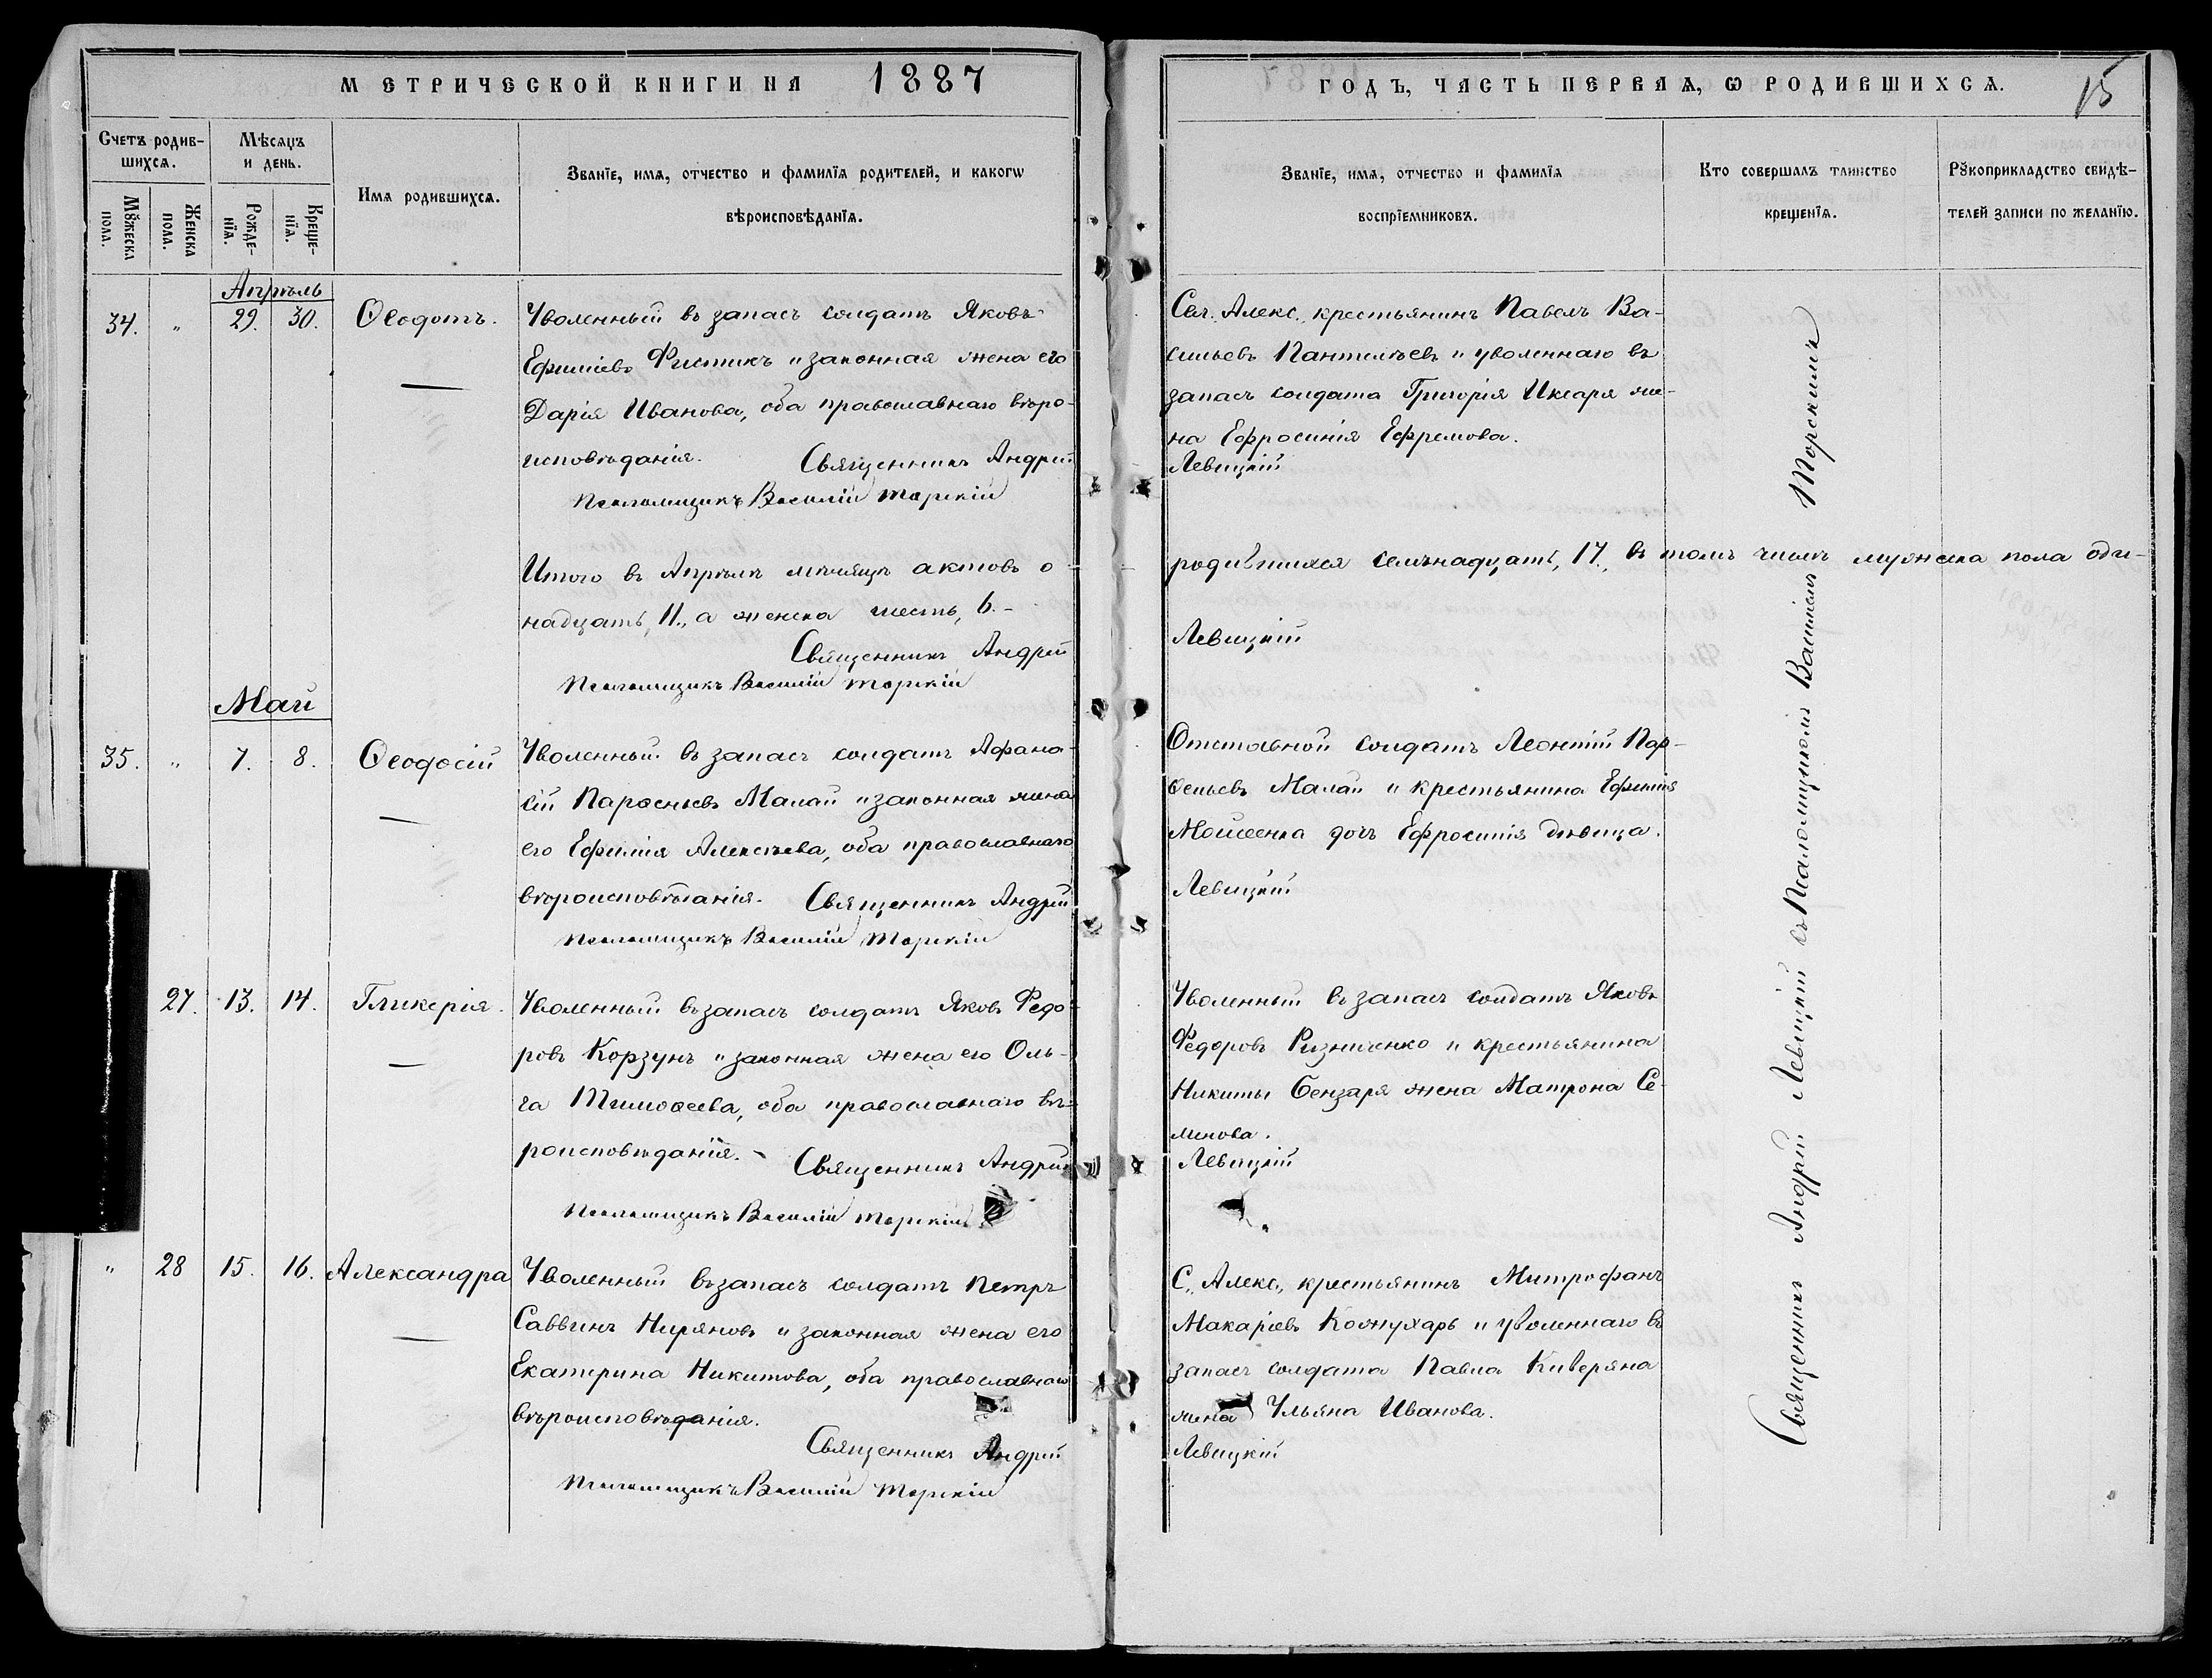 МЕТРИЧЕСКОЙ КНИГИ НА 1887
ГОДЪ, ЧАСТЬ ПЕРВАѦ, Ѡ РОДИВШИХСѦ.
15
Счетъ родив-
шихсѧ.
Мѣсѧцъ
и день.
Мꙋжеска
пола.
Женска
пола.
Рожде-
нїѧ.
Креще-
нїѧ.
Имѧ родившихсѧ.
Званїе, имѧ, отчество и фамилїѧ родителей, и какогѡ
вѣроисповѣданїѧ.
Званїе, имѧ, отчество и фамилїѧ
воспрїемниковъ.
Кто совершалъ таинство
крещенїѧ.
Рꙋкоприкладство свидѣ-
телей записи по желанїю.
Апрѣль
34. " 29. 30. Ѳеодотъ.
Уволенный въ запасъ солдатъ Яковъ
Ефиміевъ Фистикъ и законная жена его
Дарія Иванова, оба православнаго вѣро-
исповѣданія. Священникъ Андрей
Псаломщикъ Василій Торскій
Сел. Алекс. крестьянинъ Павелъ Ва-
сильевъ Пантилѣевъ и уволеннаго въ
запасъ солдата Григорія Иксаря же-
на Ефросинія Ефремова.
Левицкій
Итого въ Апрѣлѣ мѣсяцѣ актовъ о
родившихся семьнадцать, 17., въ томъ числѣ мужеска пола оди-
надцать, 11., а женска шесть, 6.-
Священникъ Андрей
Левицкій
Псаломщикъ Василій Торскій
Май
35. " 7. 8. Ѳеодосій
Уволенный въ запасъ солдатъ Афана-
сій Парѳеньевъ Малай и законная жена
его Ефимія Алексѣева, оба православнаго
вѣроисповѣданія. Священникъ Андрей
Псаломщикъ Василій Торскій
Отставной солдатъ Леонтій Пар-
ѳеньевъ Малай и крестьянина Ефимія
Моисеенка дочь Ефросинія дѣвица.
Левицкій
27. 13. 14. Гликерія.
Уволенный въ запасъ солдатъ Яковъ Федо-
ровъ Корзунъ и законная жена его Оль-
га Тимоѳеева, оба православнаго вѣ-
роисповѣданія. - Священникъ Андрей
Псаломщикъ Василій Торскій
Уволенный въ запасъ солдатъ Яковъ
Федоровъ Ризниченко и крестьянина
Никиты Бензаря жена Матрона Се-
мenова.
Левицкій
" 28 15. 16. Александра
Уволенный въ запасъ солдатъ Петръ
Саввинъ Ниряновъ и законная жена его
Екатерина Никитова, оба православнаго
вѣроисповѣданія.
Священникъ Андрей
Псаломщикъ Василій Торскій
С. Алекс. крестьянинъ Митрофанъ
Макаріевъ Кожухарь и уволеннаго въ
запасъ солдата Павла Киверяна
жена Ульяна Иванова.
Левицкій
Священникъ Андрей Левицкій съ Псаломщикомъ Василіемъ Торскимъ